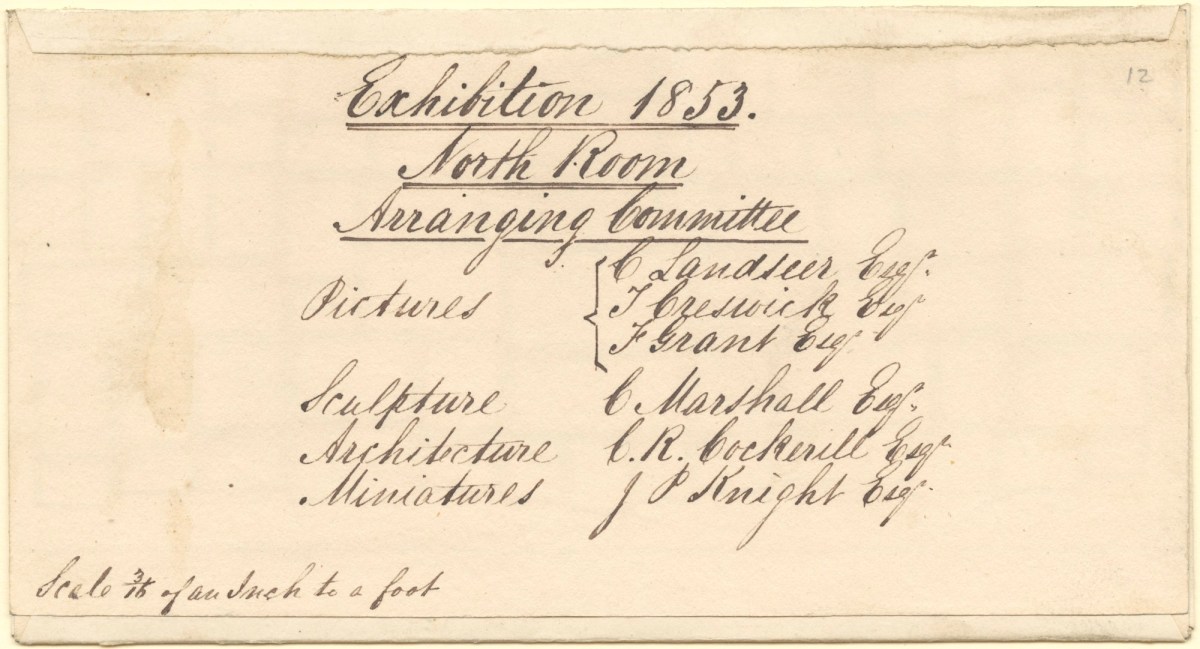 12
Exhibition 1853.
North Room
Arranging Committee
Pictures { C Landseer Esqr.
T Creswick Esqr
F Grant Esqr
Sculpture C Marshall Esqr.
Architecture C. R. Cockerill Esqr
Miniatures J P Knight Esqr.
Scale 3/16 of an Inch to a foot